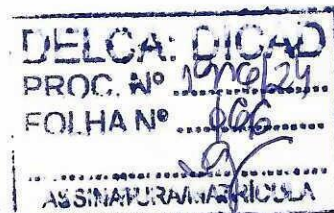 DELCA: DICAD
PROC. Nº 1906/24
FOLHA Nº 166
ASSINATURA/MATRÍCULA